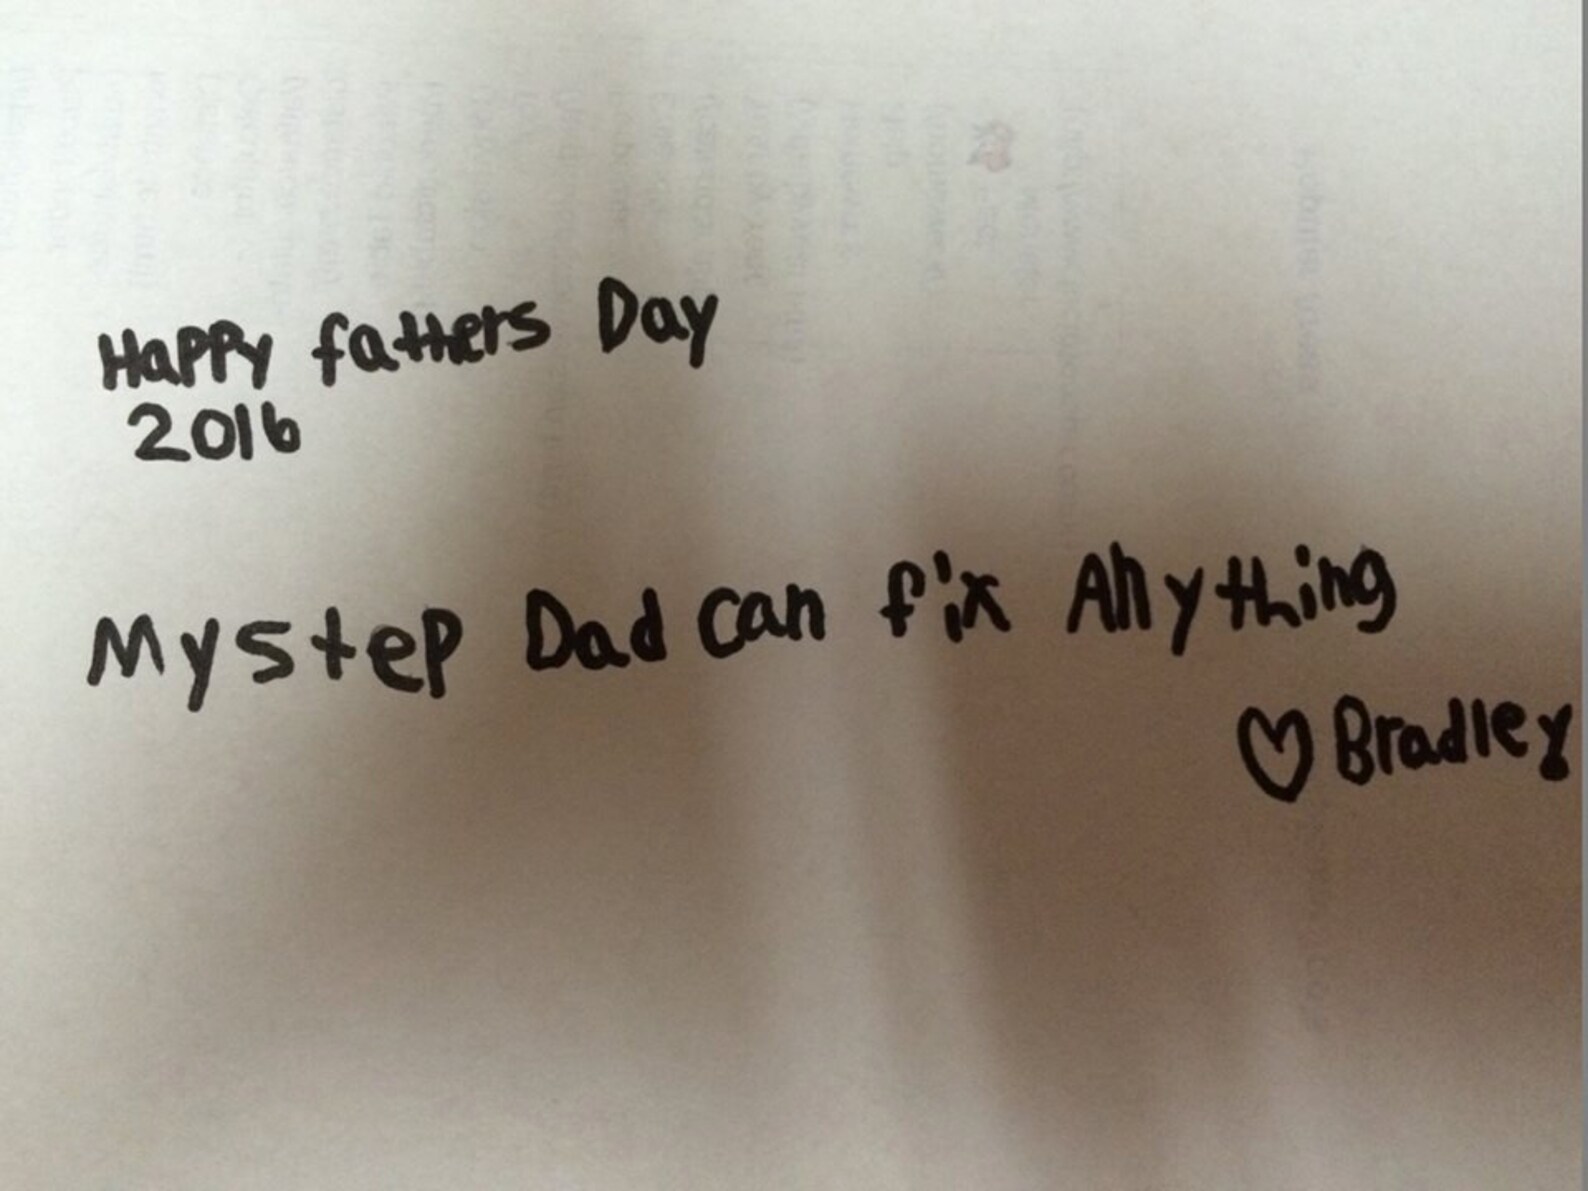 Happy fathers Day
2016
My step Dad can fix Anything
♡ Bradley